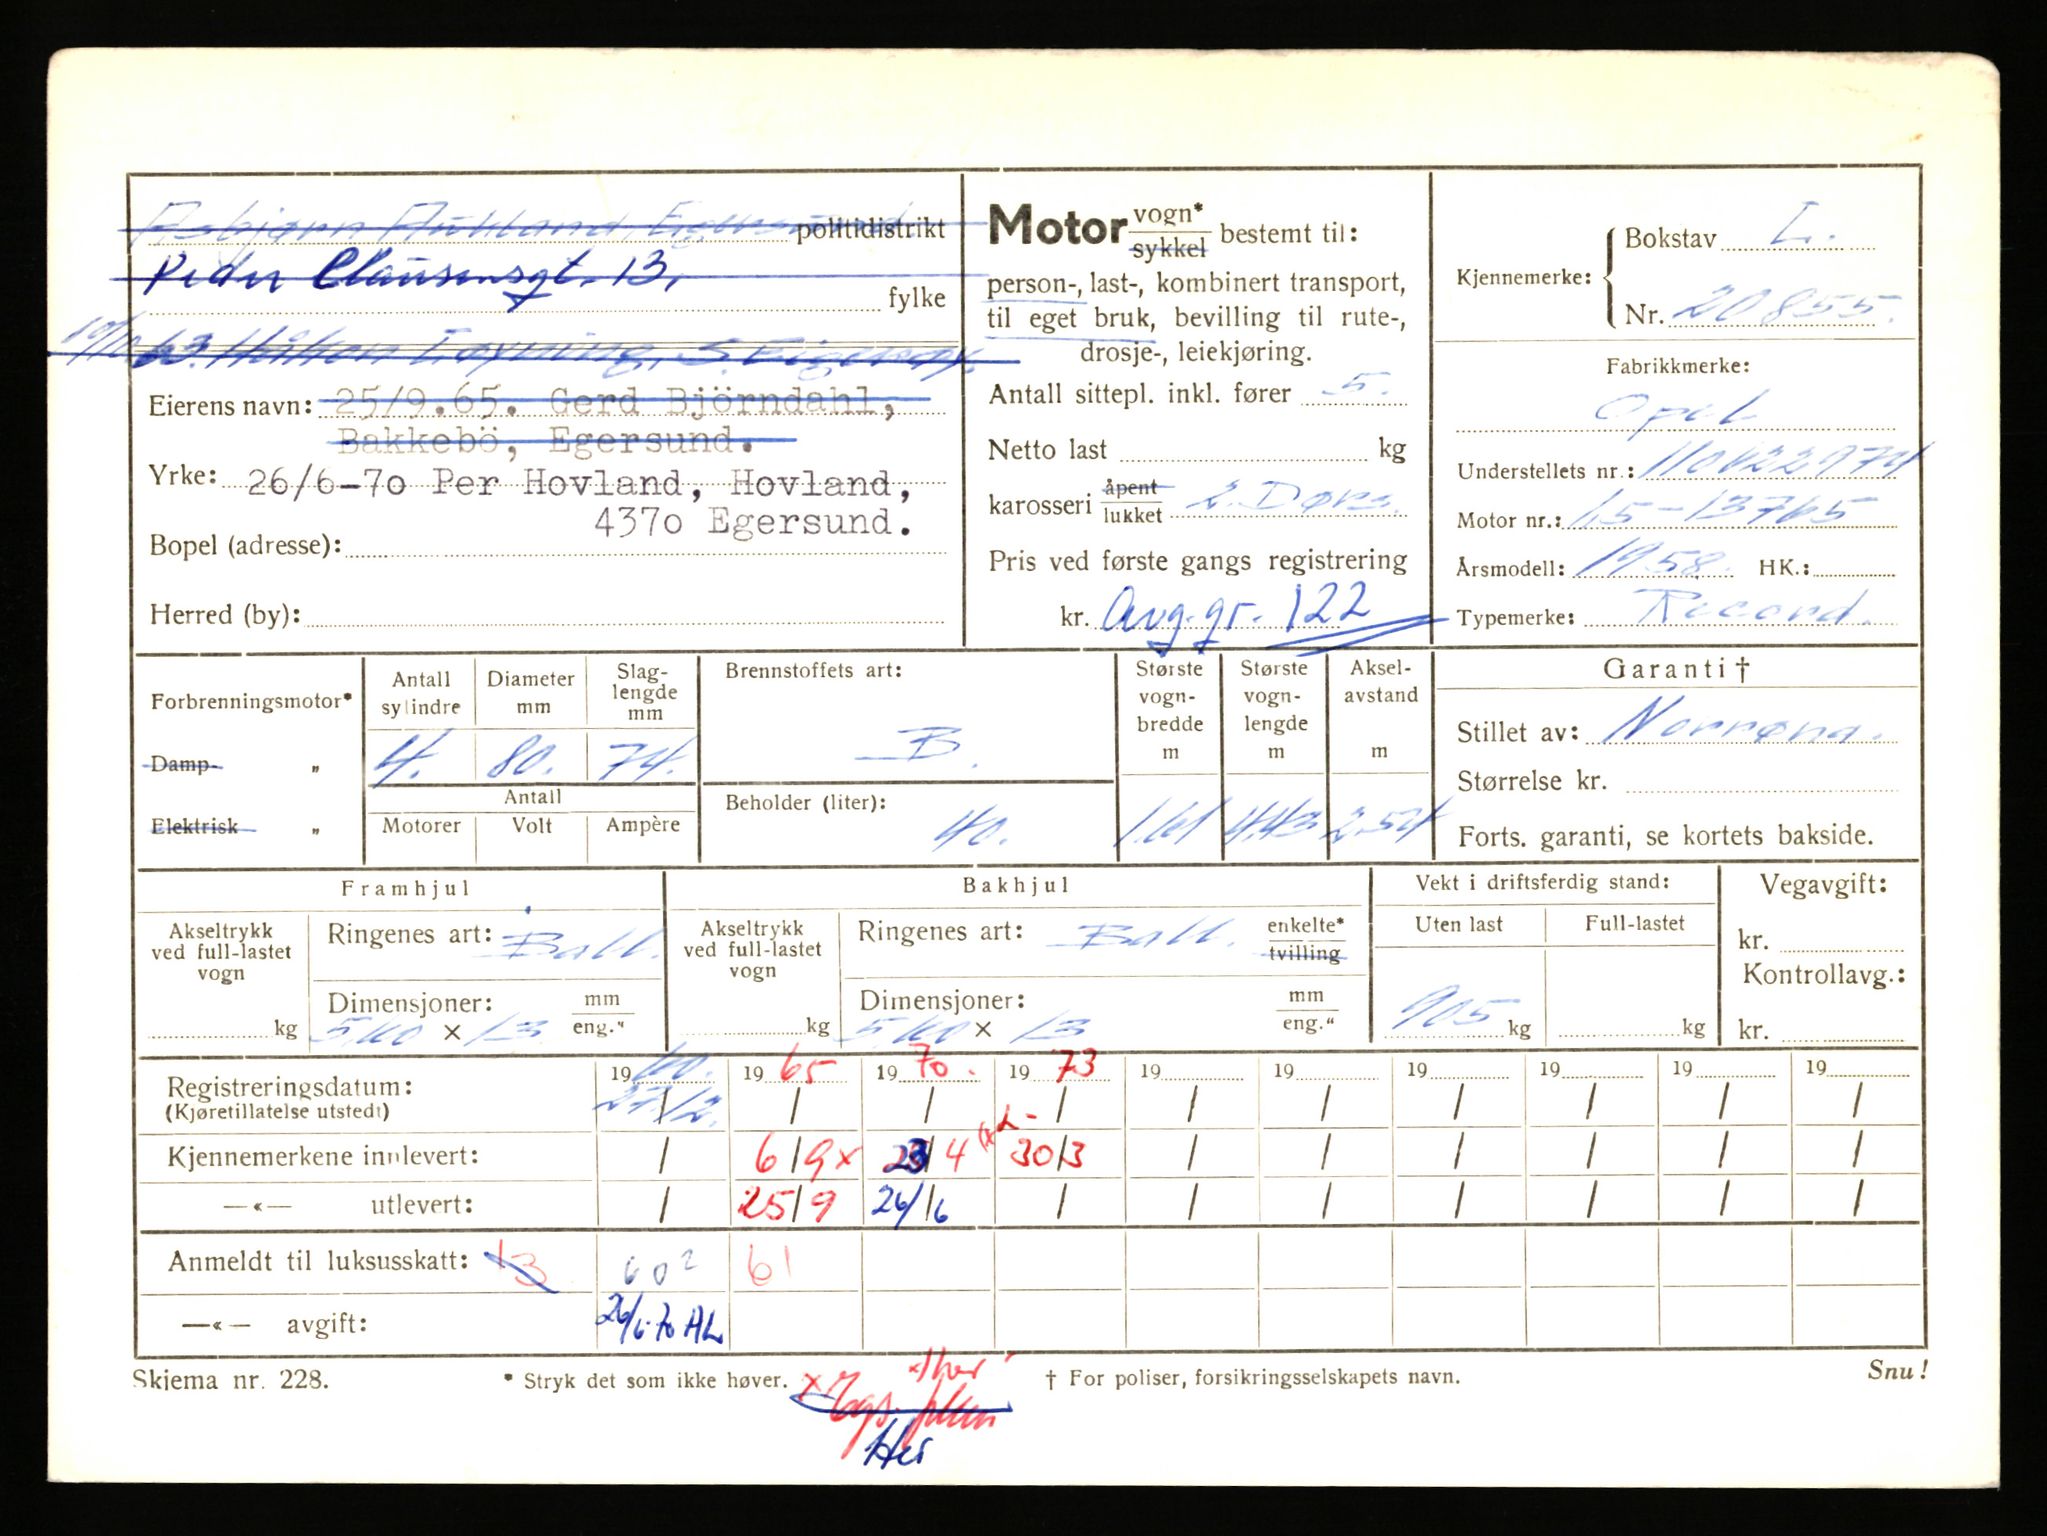 Asbjørn Aukland, Egersund politidistrikt
Peder Clausensgt. 13,
fylke
Håkon
Eierens navn: 25/9.65. Gerd Björndahl,
Bakkebö, Egersund.
Yrke: 26/6-70 Per Hovland, Hovland,
4370 Egersund.
Bopel (adresse):
Herred (by):
Motor vogn* sykkel bestemt til:
person-, last-, kombinert transport,
til eget bruk, bevilling til rute-,
drosje-, leiekjøring.
Antall sittepl. inkl. fører 5.
Netto last kg
karosseri åpent lukket 2. Dørs.
Pris ved første gangs registrering
kr. Avg.gr. 122
Kjennemerke: Bokstav L.
Nr. 20855.
Fabrikkmerke:
Opel
Understellets nr.:
Motor nr.: 1,5-13765
Årsmodell: 1958. HK.:
Typemerke: Record.
Forbrenningsmotor*
Damp- „
Elektrisk „
Antall sylindre
4.
Diameter mm
80.
Slag-lengde mm
74.
Antall
Motorer Volt Ampère
Brennstoffets art:
B.
Beholder (liter):
40.
Største vogn-bredde m
1.61
Største vogn-lengde m
4.43
Aksel-avstand m
2.54
Garanti †
Stillet av: Norrøna.
Størrelse kr.
Forts. garanti, se kortets bakside.
Framhjul
Akseltrykk ved full-lastet vogn
kg
Ringenes art: Ball.
Dimensjoner: mm eng.“
5.60 × 13
Bakhjul
Akseltrykk ved full-lastet vogn
kg
Ringenes art: Ball. enkelte* tvilling
Dimensjoner: mm eng.“
5.60 × 13
Vekt i driftsferdig stand:
Uten last Full-lastet
905 kg kg
Vegavgift:
kr.
Kontrollavg.:
kr.
Registreringsdatum: 1960. 1965 1970. 1973 19 19 19 19 19 19
(Kjøretillatelse utstedt) 27/2. / / / / / / / / /
Kjennemerkene innlevert: / 6/9 x 23/4 (x L- 30/3 / / / / / /
—«— utlevert: / 25/9 26/6 / / / / / / /
Anmeldt til luksusskatt: 13 602 61
—«— avgift: 26/6-70 AL
Skjema nr. 228.
* Stryk det som ikke høver.
† For poliser, forsikringsselskapets navn.
Snu!
x her
Her